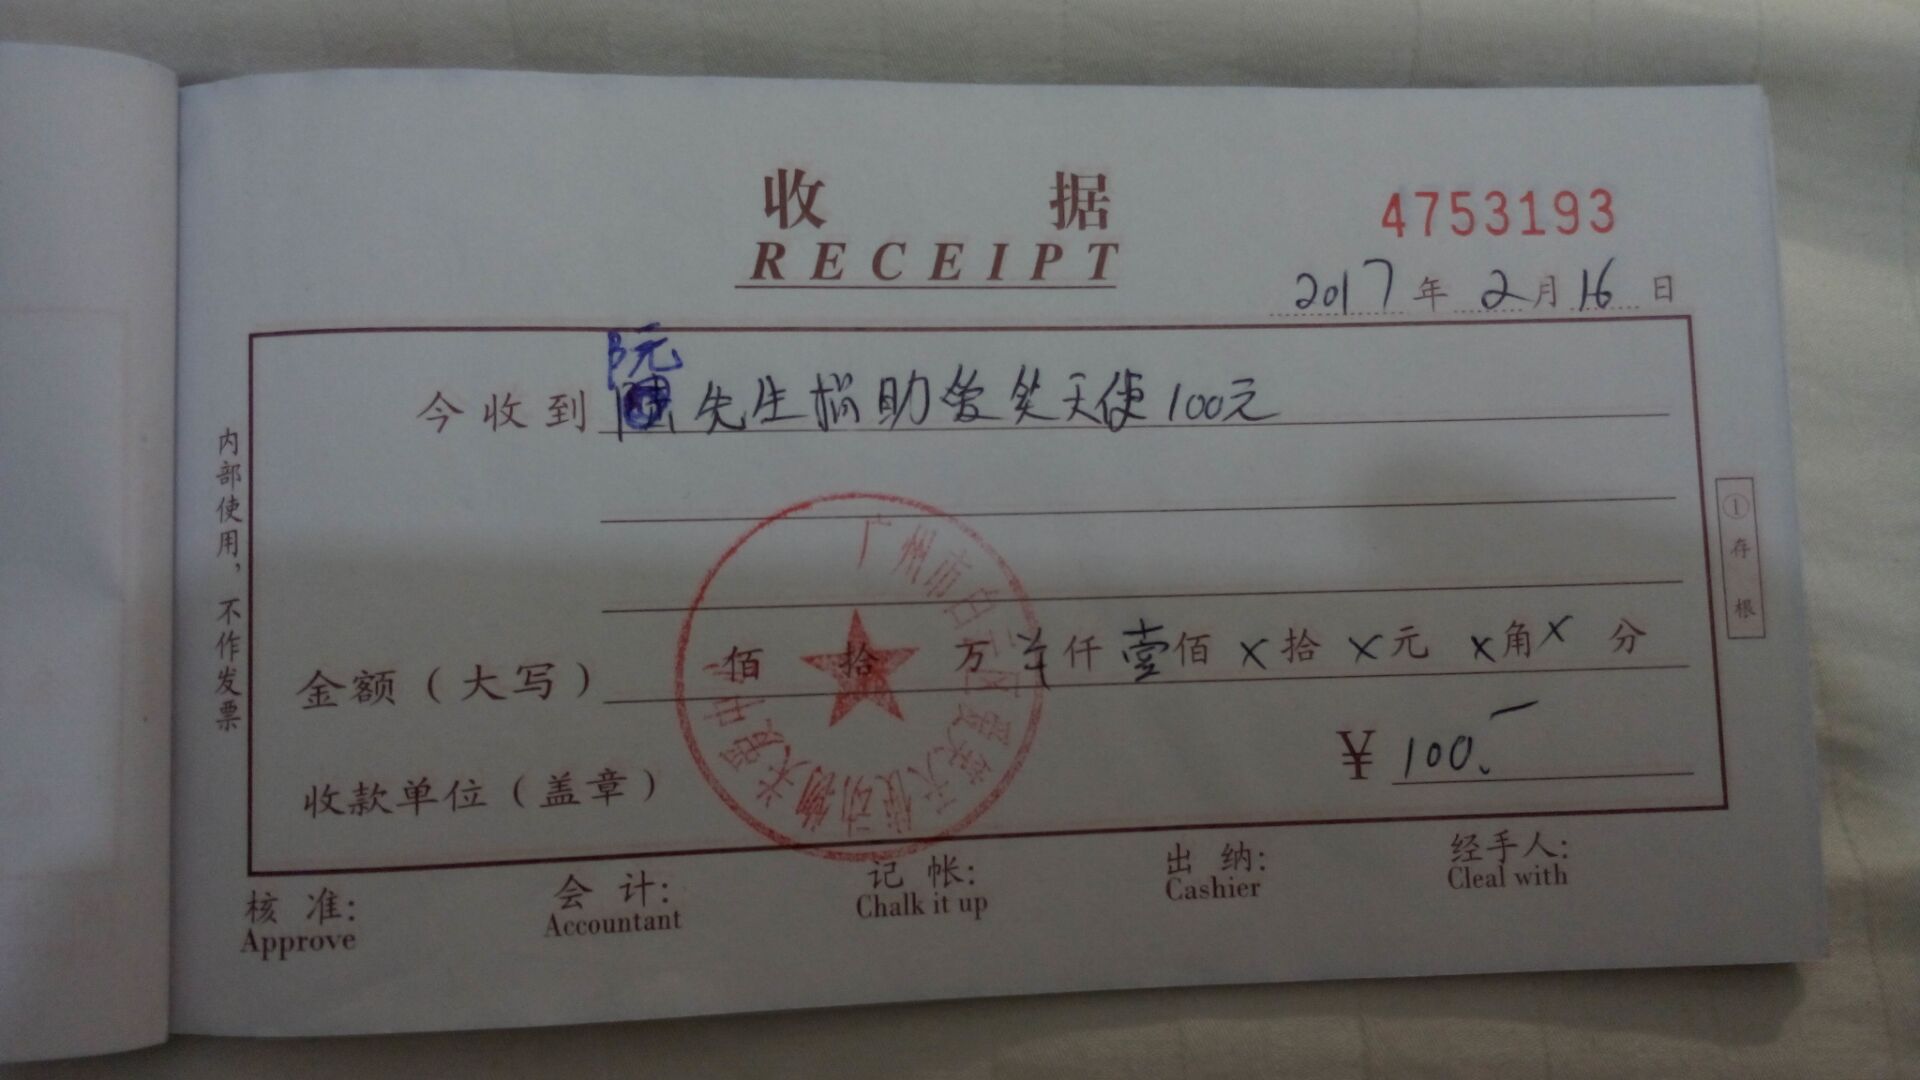 收据
RECEIPT
4753193
2017年2月16日
阮
今收到 先生捐助爱笑天使100元
金额（大写） 佰 拾 万 仟壹佰×拾×元×角×分
¥ 100.—
收款单位（盖章）
核准: 会计: 记帐: 出纳: 经手人:
Approve Accountant Chalk it up Cashier Cleal with
内部使用，不作发票
①存根
广州市白云区 天使动物关爱中心